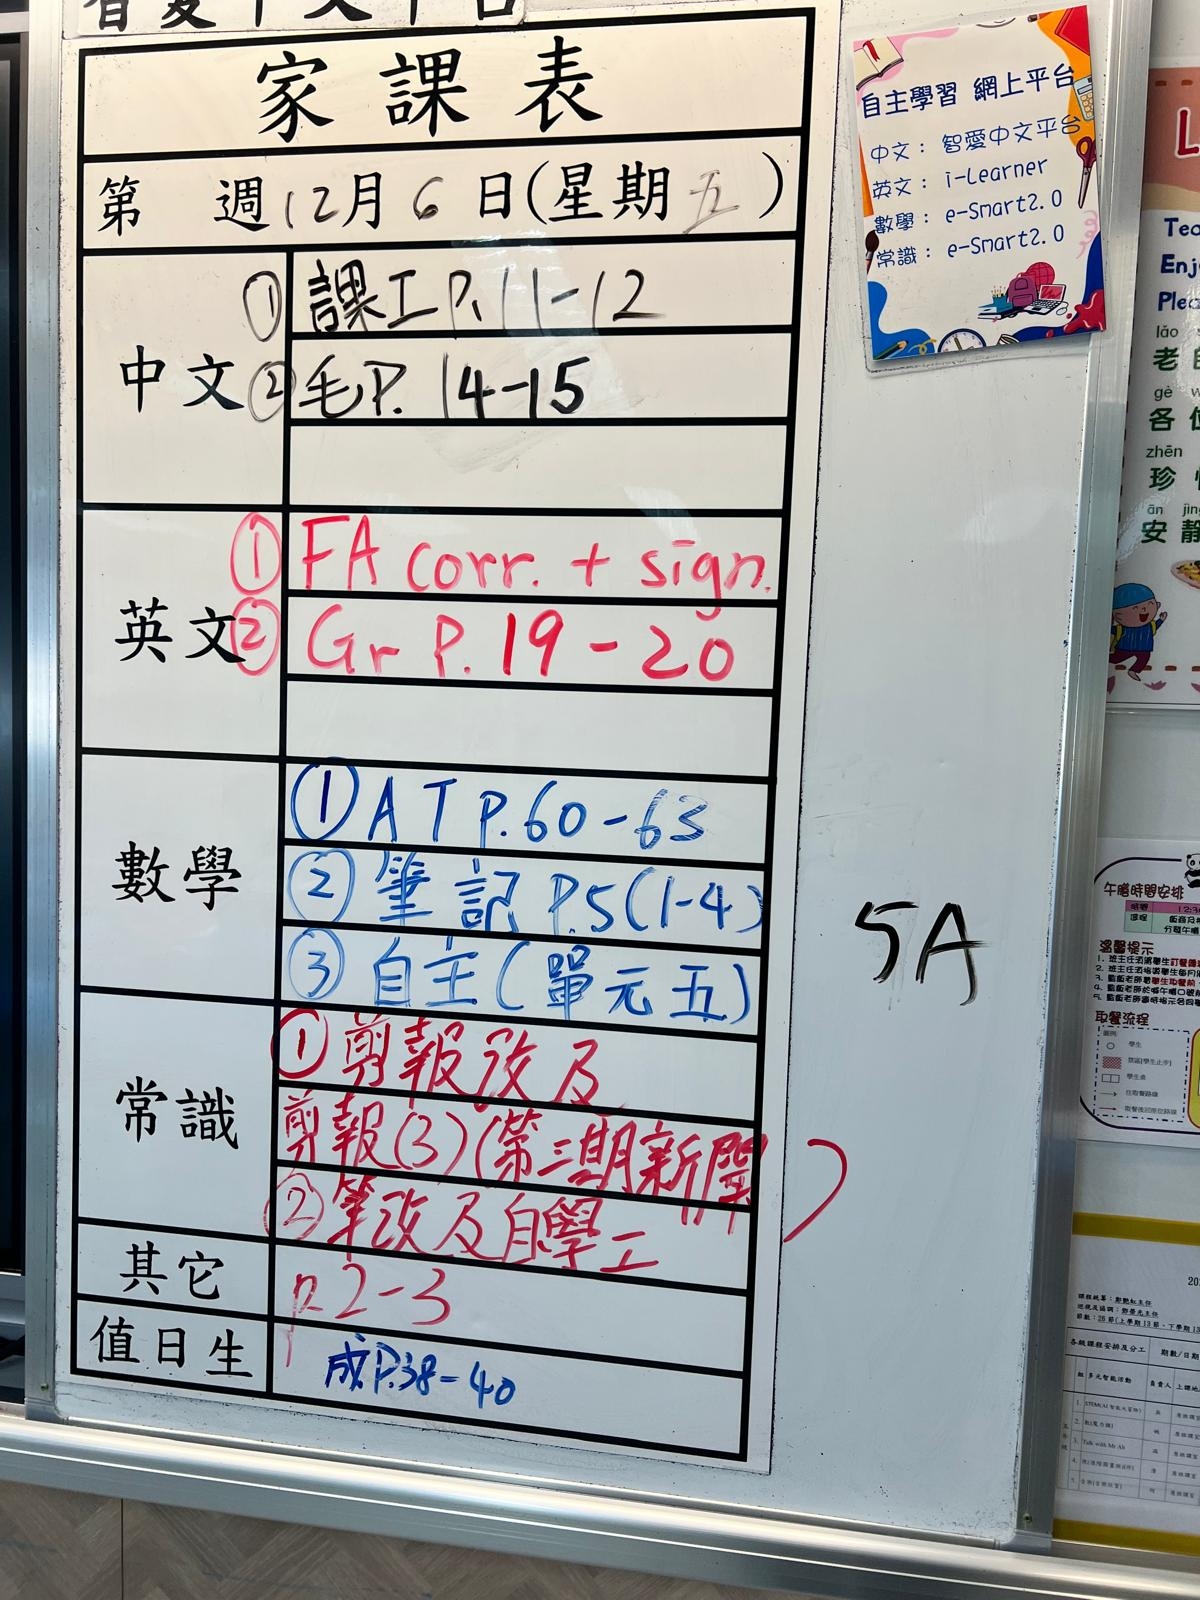 家課表
第 週 12月6日(星期五)
中文
① 課工P.11-12
② 毛P.14-15
英文
① FA corr. + sign.
② Gr P.19-20
數學
① AT P.60-63
② 筆記 P.5(1-4)
③ 自主(單元五)
常識
① 剪報改及
剪報(3)(第三期新聞)
② 筆改及自學工
其它
P.2-3
值日生
成P.38-40
5A
自主學習 網上平台
中文：智愛中文平台
英文：i-Learner
數學：e-Smart2.0
常識：e-Smart2.0
Enj
Plea
lǎo
老
gè
各
zhēn
珍
ān
安 靜
午膳時間安排
溫馨提示
取餐流程
學生
學生桌
多元智能活動
負責人
Talk with Mr Ah